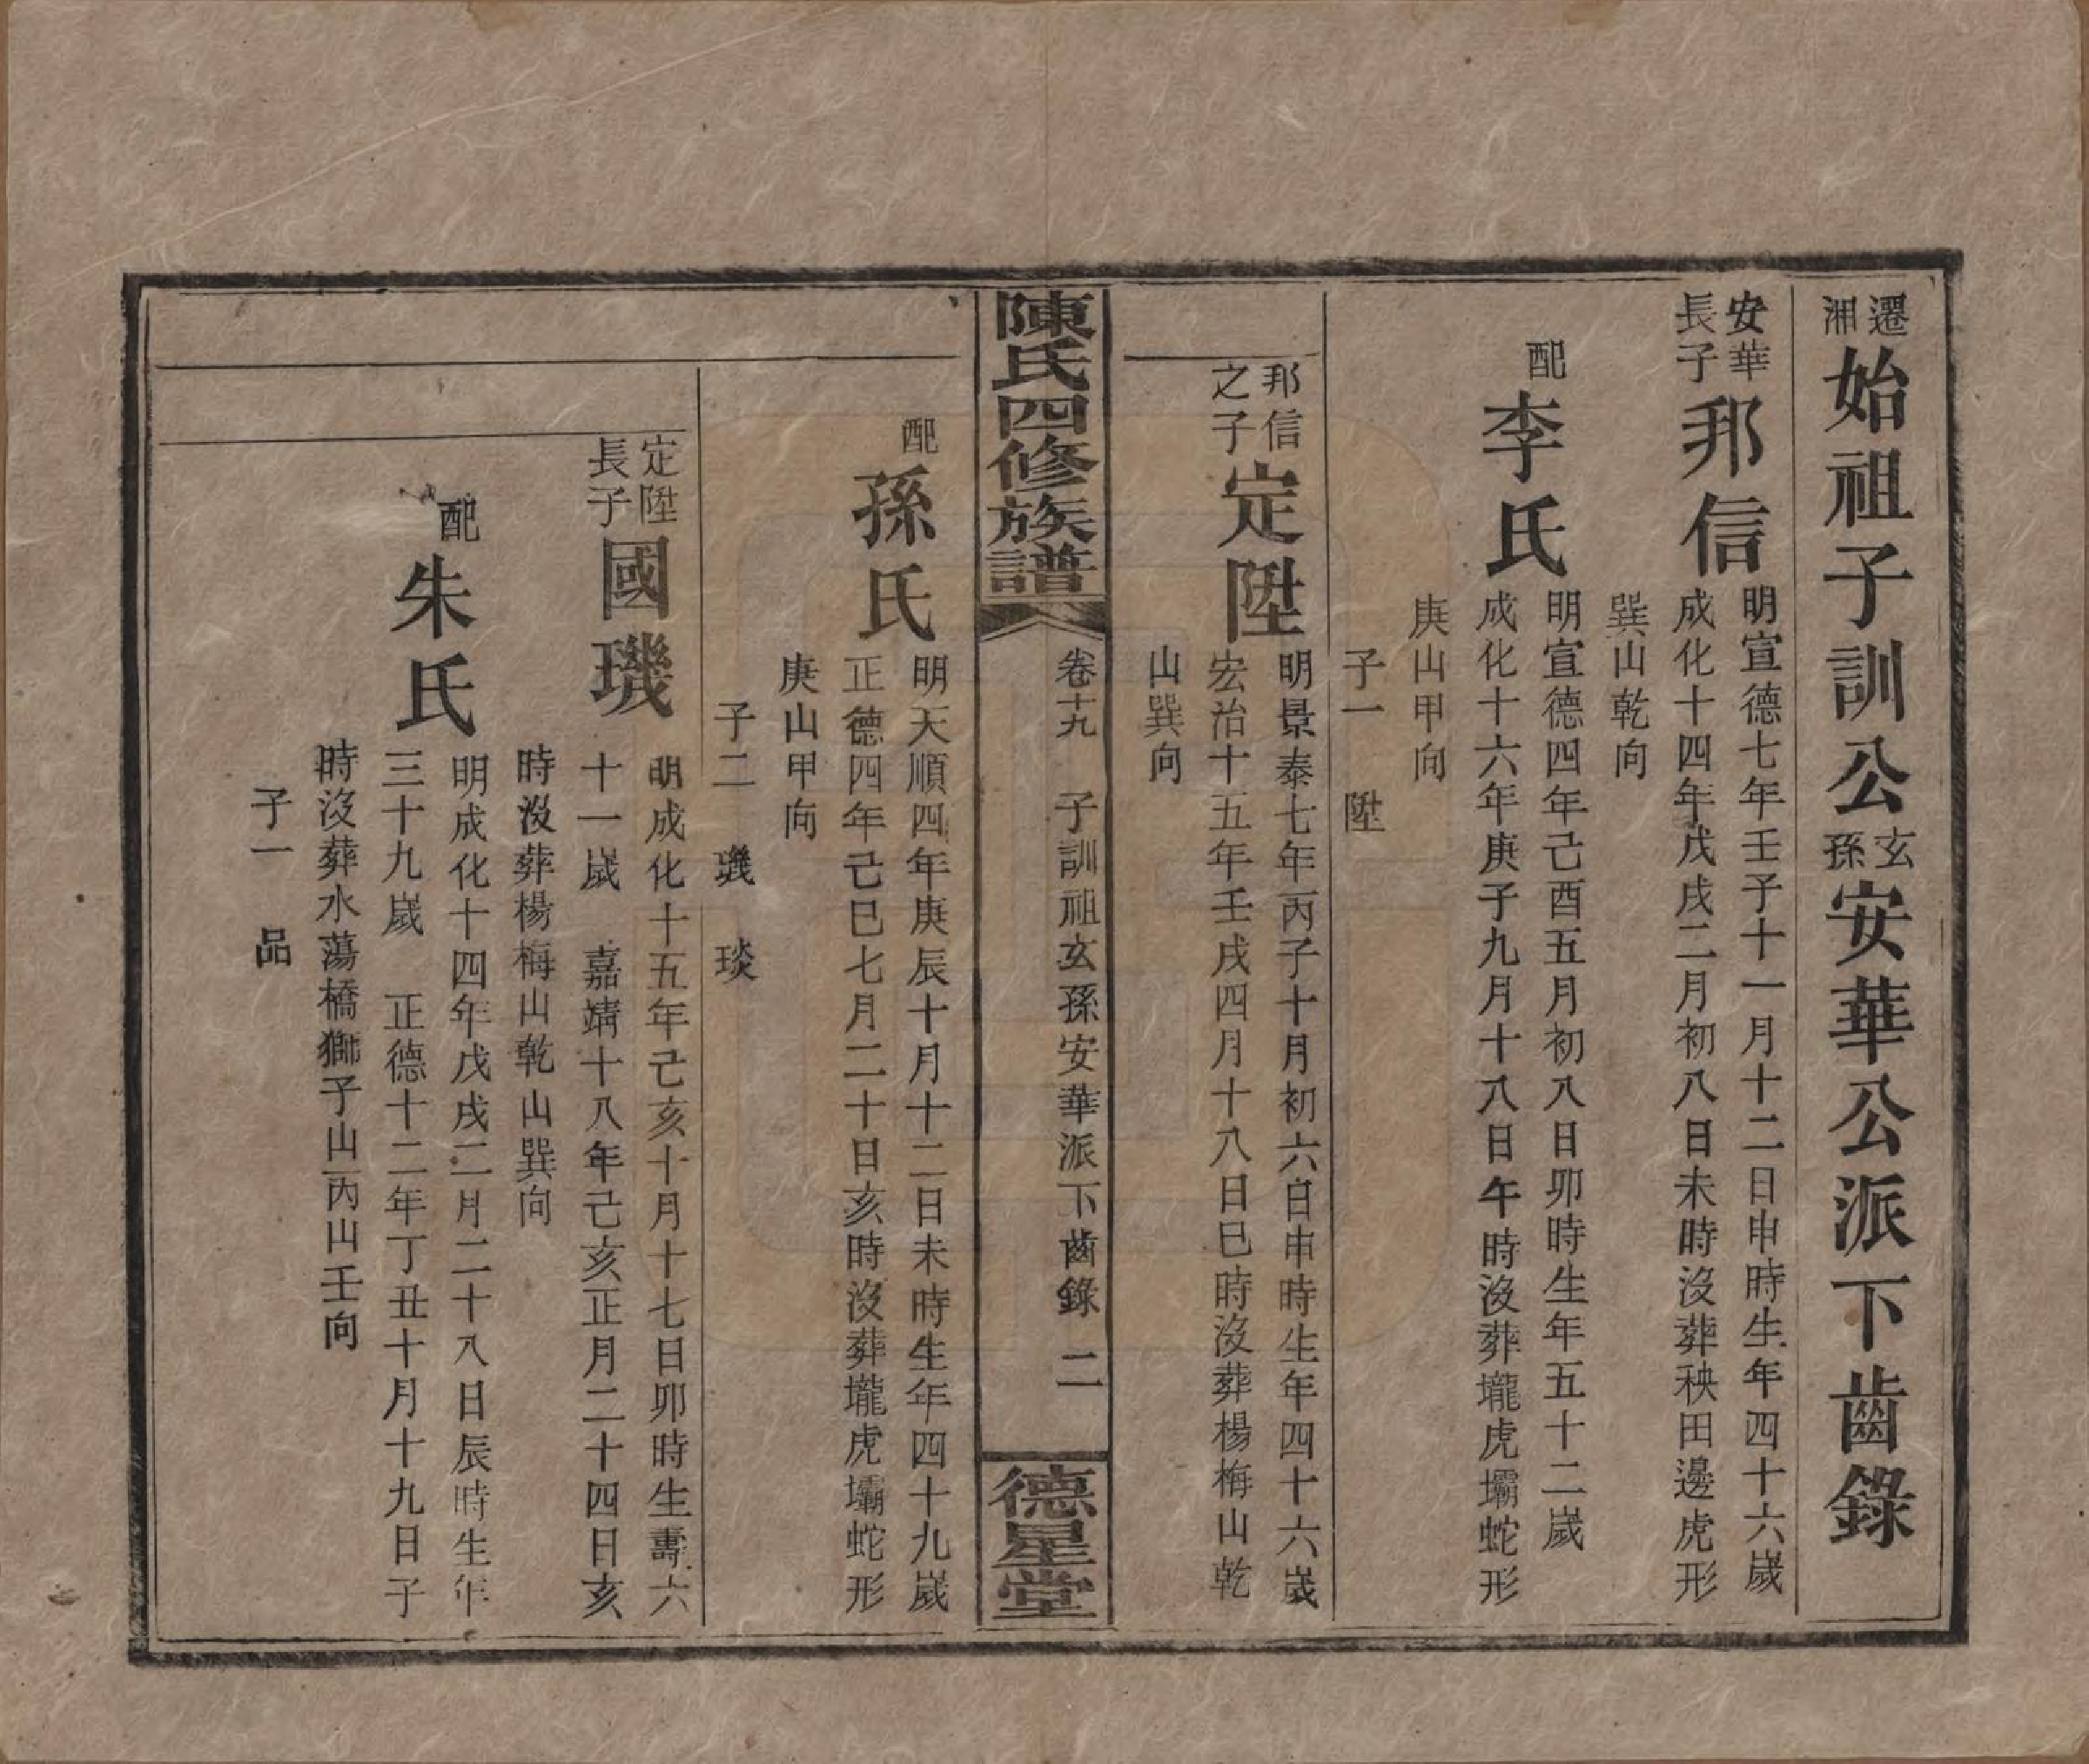 遷湘始祖子訓公玄孫安華公派下齒錄
安華長子邦信
明宣德七年壬子十一月十二日申時生年四十六歲
成化十四年戊戌二月初八日未時沒葬秧田邊虎形
巽山乾向
配李氏
明宣德四年己酉五月初八日卯時生年五十二歲
成化十六年庚子九月十八日午時沒葬壠虎壩蛇形
庚山甲向
子一 陞
邦信之子定陞
明景泰七年丙子十月初六日申時生年四十六歲
宏治十五年壬戌四月十八日巳時沒葬楊梅山乾
山巽向
陳氏四修族譜
卷十九 子訓祖玄孫安華派下齒錄 二
德星堂
配孫氏
明天順四年庚辰十月十二日未時生年四十九歲
正德四年己巳七月二十日亥時沒葬壠虎壩蛇形
庚山甲向
子二 璣 琰
定陞長子國璣
明成化十五年己亥十月十七日卯時生壽六
十一歲 嘉靖十八年己亥正月二十四日亥
時沒葬楊梅山乾山巽向
配朱氏
明成化十四年戊戌二月二十八日辰時生年
三十九歲 正德十二年丁丑十月十九日子
時沒葬水蕩橋獅子山丙山壬向
子一 品